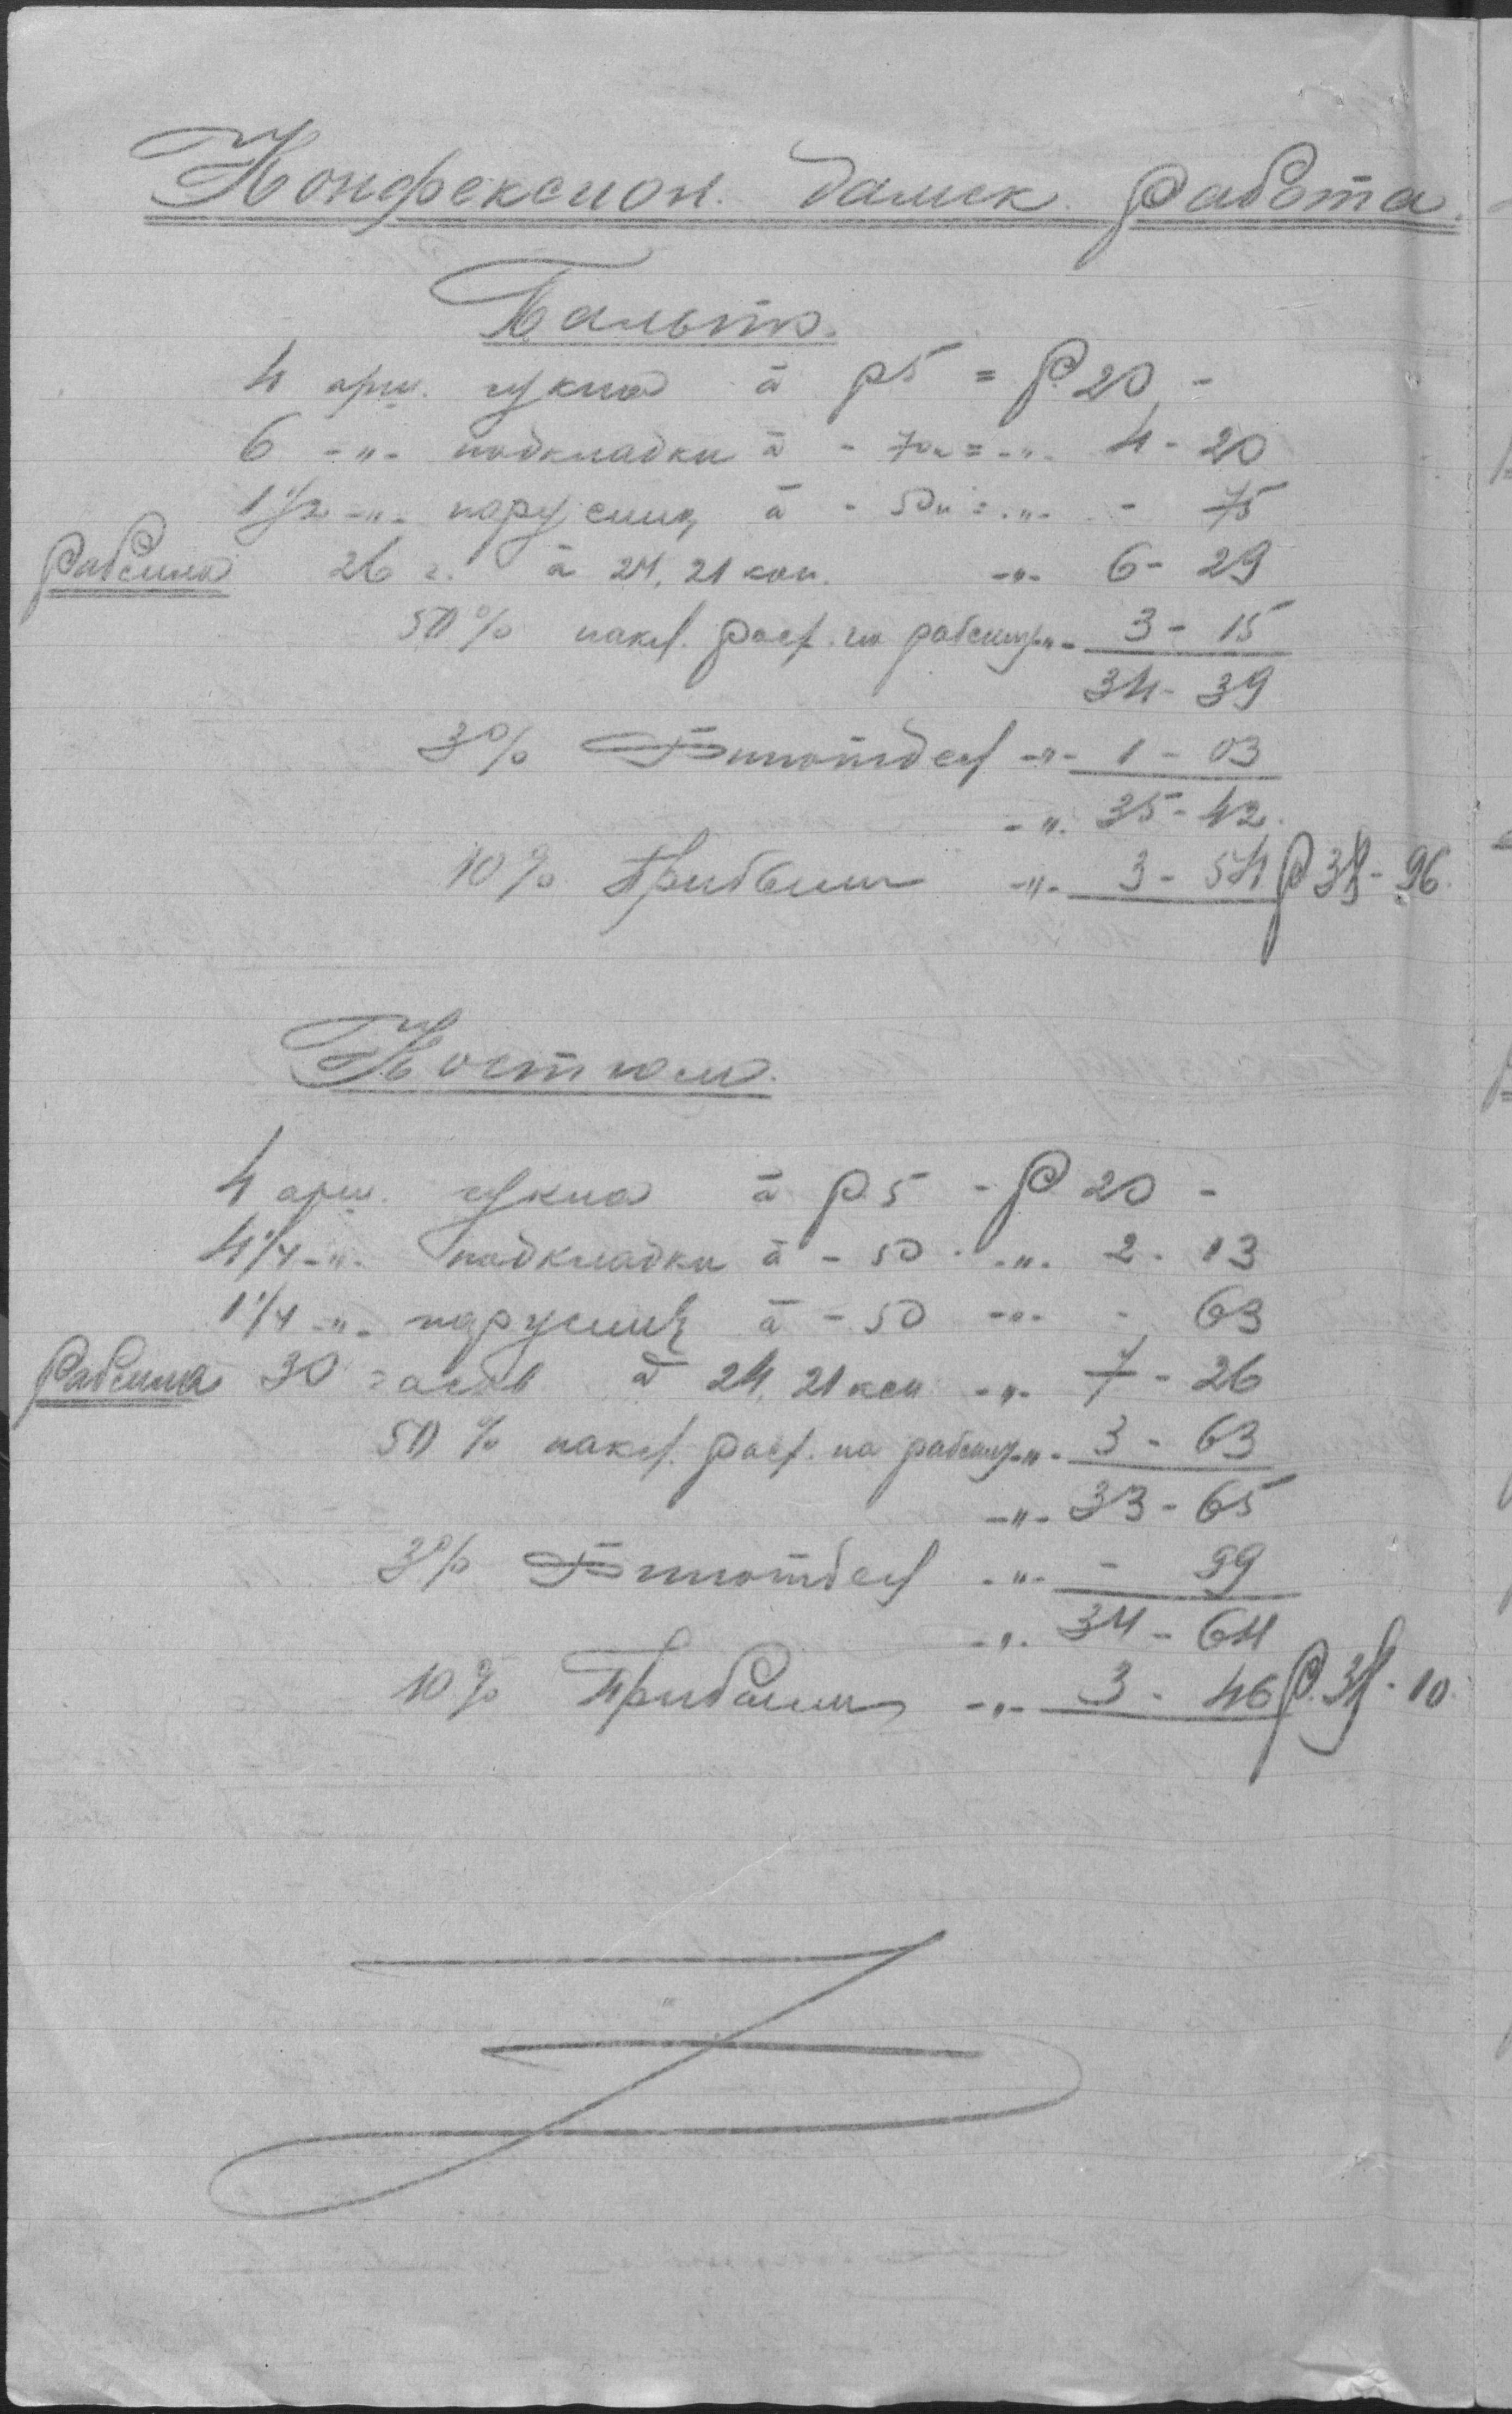 Конфекцион. дамск. работа.
Пальто.
4 арш. сукна à р 5 = Р. 20 -
6 -"- подкладки à - 70к = -"- 4 - 20
1 1/2 -"- парусины à - 50к = -"- - 75
Рабсила 26 ч. à 24,21 коп. -"- 6 - 29
50% накл. расх. на рабсилу -"- 3 - 15
34 - 39
3% -"- 1 - 03
-"- 35 - 42.
10% Прибыли -"- 3 - 54 Р 38 - 96.
Костюм.
4 арш. сукна à р. 5 - Р. 20 -
4 1/4 -"- подкладки à - 50 - -"- 2 - 13
1 1/4 -"- парусины à - 50 -"- - 63
Рабсила 30 часов à 24,21 коп -"- 7 - 26
50% накл. расх. на рабсилу -"- 3 - 63
-"- 33 - 65
3% -"- - 99
-"- 34 - 64
10% Прибыли -"- 3 - 46 Р. 38 - 10.